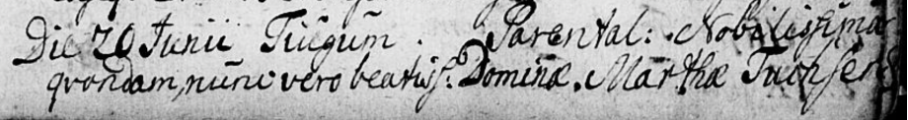 Die 20 Junii Tiugum. Parental: Nobilissimæ
quondam, nunc vero beatiss: Dominæ. Marthæ